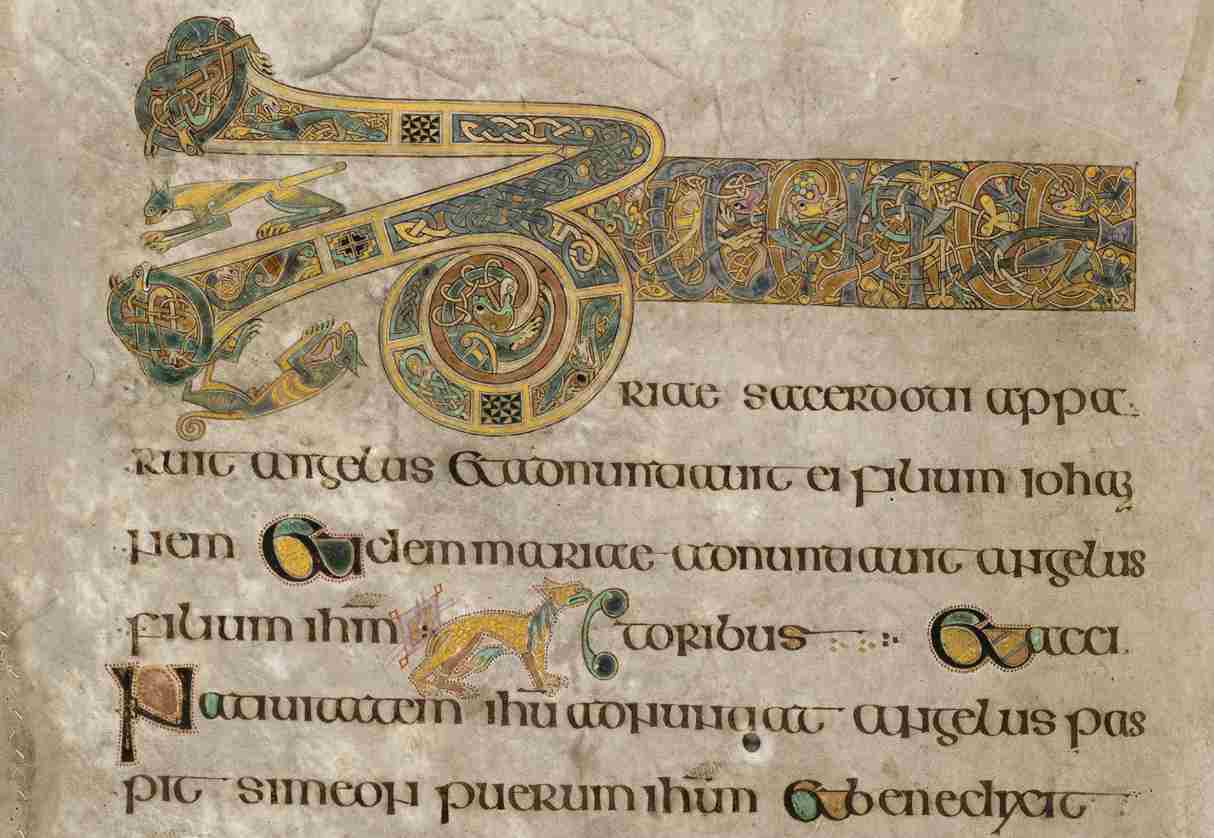 Zacha
riae sacerdoti appa
ruit angelus & adnuntiauit ei filium iohan
nem & idem mariae adnuntiauit angelus
filium ihm̄ toribus & acci
Natiuitatem ihū adnuntiat angelus pas
pit simeon puerum ihm̄ & benedixit